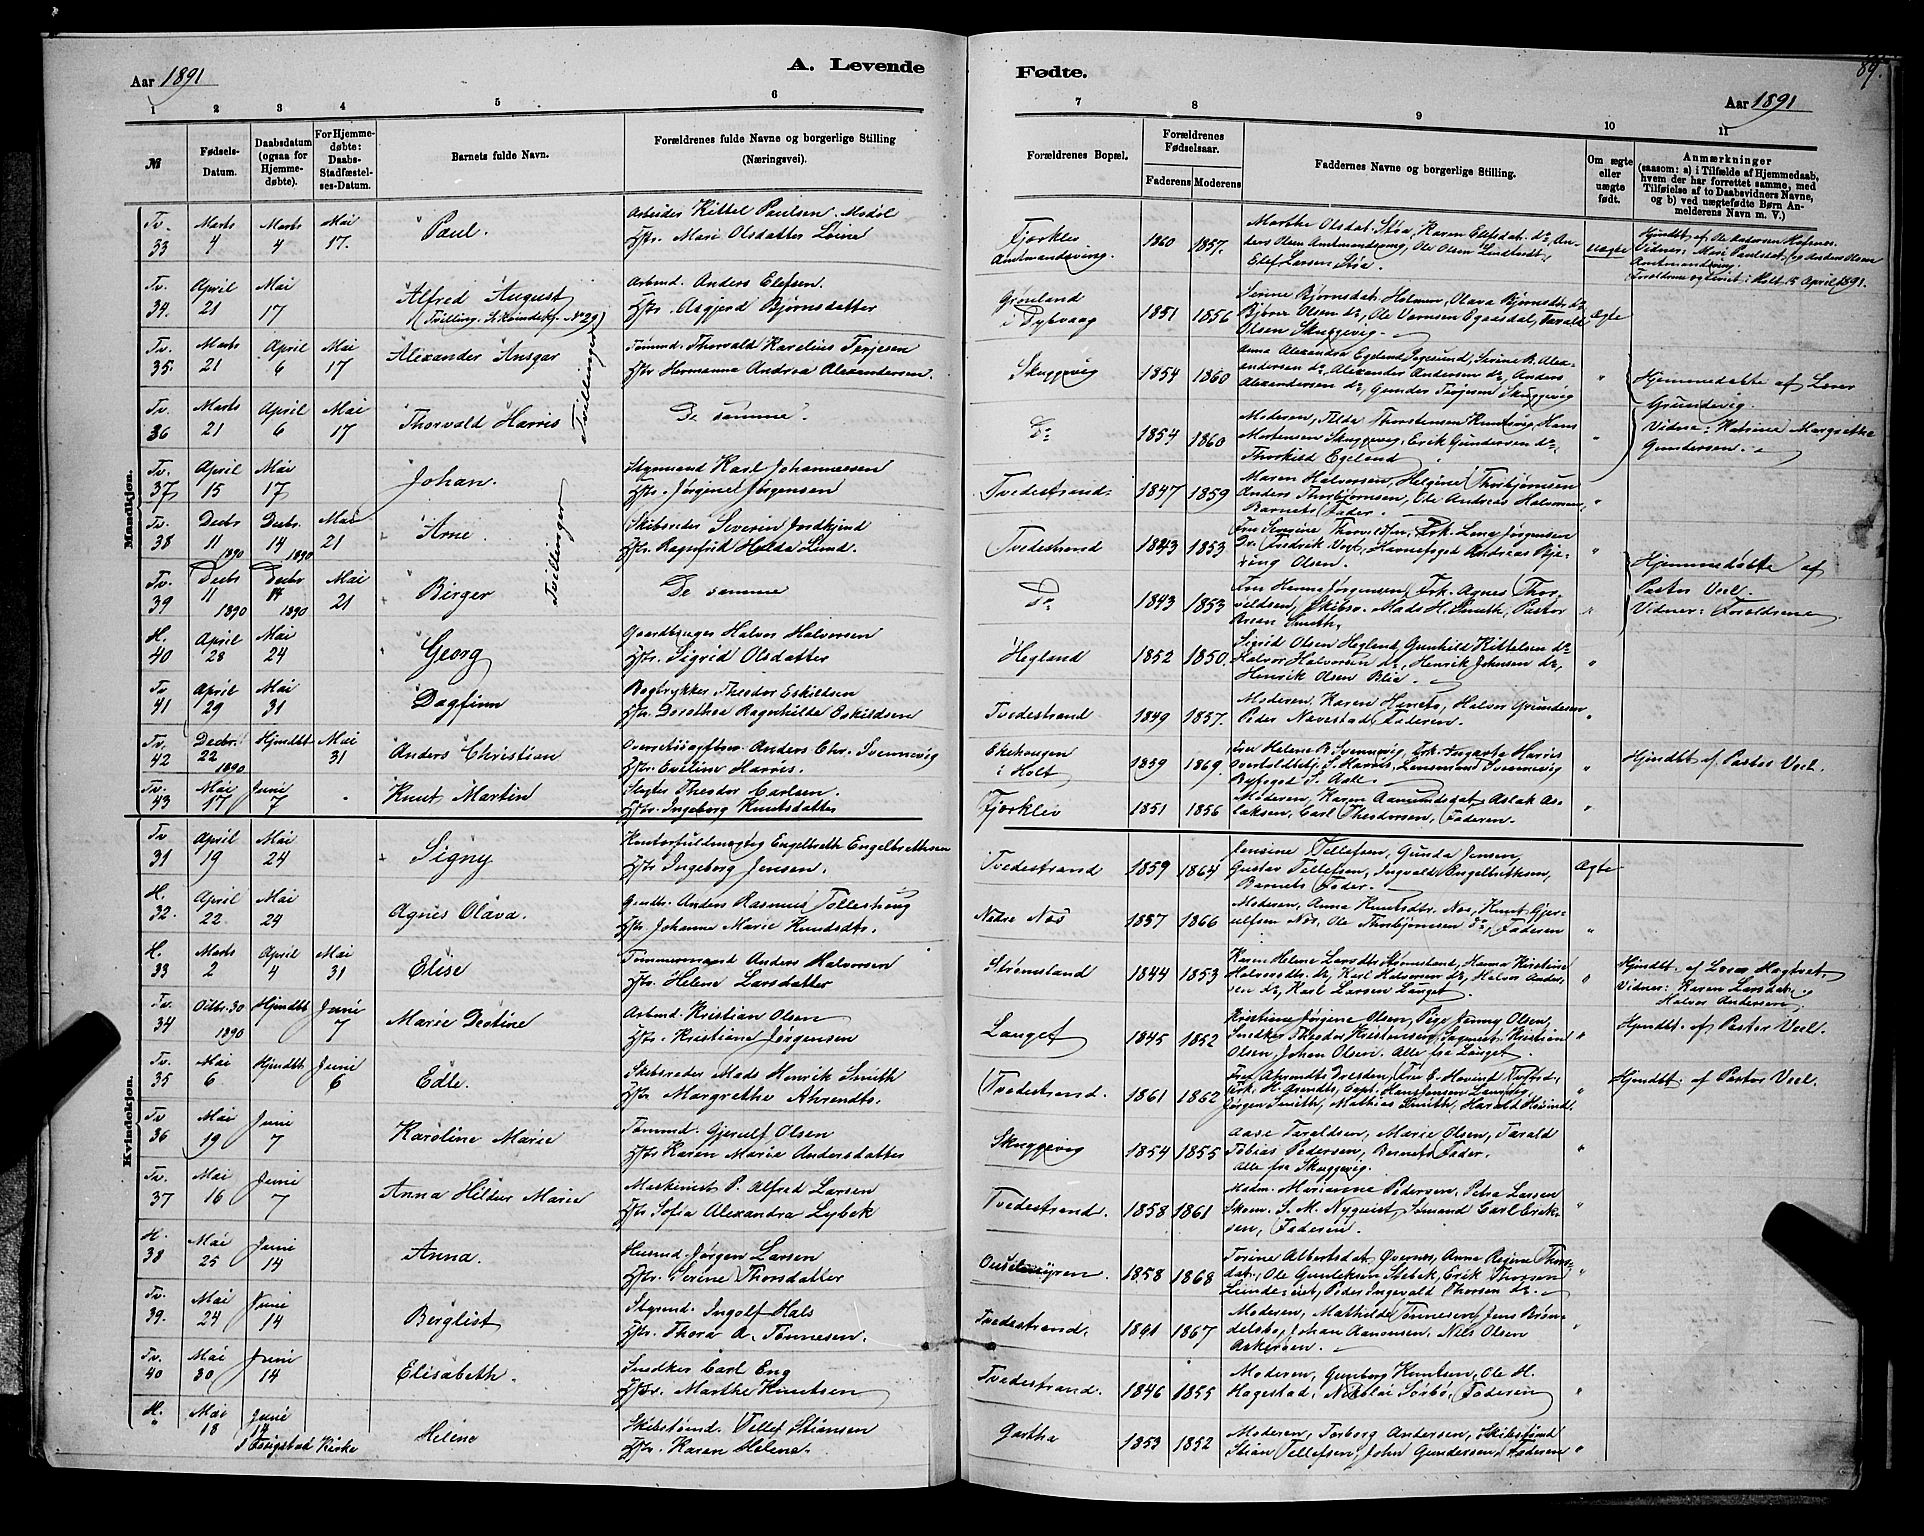 Aar 1891
A. Levende
Fødte.
89.
Aar 1891
1 2 3 4 5 6 7 8 9 10 11
№
Fødsels-
Datum.
Daabsdatum
(ogsaa for
Hjemme-
døbte).
For Hjemme-
døbte:
Daabs-
Stadfæstel-
ses-Datum.
Barnets fulde Navn.
Forældrenes fulde Navne og borgerlige Stilling
(Næringsvei).
Forældrenes Bopæl.
Forældrenes
Fødselsaar.
Faderens Moderens
Faddernes Navne og borgerlige Stilling.
Om ægte
eller
uægte
født.
Anmærkninger
(saasom: a) i Tilfælde af Hjemmedaab,
hvem der har forrettet samme, med
Tilføielse af to Daabsvidners Navne,
og b) ved uægtefødte Børn An-
melderens Navn m. V.)
Mandkjøn.
Tv. 33 Marts 4 Marts 4 Mai 17. Paul.
Arbeider Kittel Paulsen
Hstr. Mari Olsdatter
Fjorklev
Amtmandsving.
1860 1857.
Marthe Olsdat. Støa, Karen Elefsdat. do, An-
ders Olsen Amtmandsving, Ole Olsen
Elef Larsen, Støa.
uægte
Hjmdbt. af Ole Andersen
Vidner: Mari Paulsdat. og Anders Olsen
Amtmandsving
Forældrene ogteviet i Holt 15 April 1891.
Tv. 34. April 21 Mai 17 Alfred August
(Tvilling. № 29)
Arbmd. Anders Elefsen.
Hstr. Asgjerd Bjørnsdatter
Grønland
i Dybvaag
1851 1856
Serine Bjørnsdat. Holmen, Olava Bjørnsdtr. do
Bjørn Olsen do, Ole Egaasdal, Tarald
Olsen Skuggevig.
Ægte
Tv. 35. Marts 21 April 6 Mai 17 Alexander Ansgar
Tvillinger
Tømmd. Thorvald Karelius Terjesen
Hstr Hermanna Andrea Alexandersen.
Skuggevig
1854 1860
Anna Alexandra Egeland, Serine B. Alex-
andersen do, Alexander Andersen do, Anders
Alexandersen do, Gunder Terjesen Skuggevig
"
Hjemmedøbte af Lærer
Grundevig.
Vidne: Katrine Margrethe
Gundersen.
Tv. 36 Marts 21 April 6 Mai 17 Thorvald Harris
De samme.
Do
1854 1860
Moderen, Tilda Thorstensen, Hans
Mortensen Skuggevig, Erik Gundersen do,
Thorkild Egeland
"
Tv. 37 April 15 Mai 17 Johan.
Styrmand Karl Johannesen
Hstr. Jørgine Jørgensen
Tvedestrand.
1847 1859
Maren Halvorsen, Helgine Thorbjørnsen
Anders Thorbjørnsen, Ole Andreas Halvorsen
Barnets Fader.
"
Tv. 38 Decbr 11 1890 Decbr. 14 1890 Mai 21 Arne.
Tvillinger
Skibsreder Severin
Hstr. Ragnfrid Hulda Lund.
Tvedestrand
1843 1853
Fru Severine, Frk. Lena Jørgensen
Dr. Fredrik Vogt, Andreas Bje-
ring Olsen.
"
Tv. 39 Decbr 11 1890 Decbr 14 1890 Mai 21 Birger
De samme
Do
1843 1853
Fru Hanne Jørgensen, Frk. Agnes Thor-
valdsen, Skibsr. Mads H. Smith, Pastor
Smith,
"
Hjemmedøbte af
Pastor Veel.
Vidner: Forældrene
H. 40 April 28 Mai 24 Georg
Gaardbruger Halvor Halvorsen
Hstr. Sigrid Olsdatter
Hegland
1852 1850.
Sigrid Olsen Hegland, Gunhild Kittelsen do
Halvor Halvorsen do, Henrik Johnsen do,
Henrik Olsen Blia.
"
Tv. 41 April 29 Mai 31 Dagfinn
Bogtrykker Theodor Eskildsen
Hstr. Dorothea Ragnhilda Eskildsen
Tvedestrand
1849 1857.
Moderen, Karen, Halvor Grundesen
Peder Navestad, Faderen.
"
Tv. 42 Decbr. 22 1890 Hjmdbt Mai 31 Anders Christian
Overretssagfører Anders Chr. Svennevig
Hstr. Eveline Harris.
Ekehougen
i Holt
1839 1869.
Fru Helene B. Svennevig, Frk. Harris
S. Harris, Lensmand Svennevig
Byfoged S. Aall.
"
Hjmdbt af Pastor Veel.
Tv. 43 Mai 17 Juni 7 Knut Martin
Slagter Theodor Carlsen.
Hstr. Ingeborg Knutsdatter
Fjorklev
1851 1856
Moderen, Karen Aamundsdat. Aslak As-
laksen, Carl Theodorsen, Faderen.
"
Kvindekjøn.
Tv 31 April 19 Mai 24 Signy
Kontorfuldmægtig Engelbreth Engelbrethsen
Hstr. Ingeborg Jensen.
Tvedestrand
1859 1864
Jensine Tellefsen, Gunda Jensen,
Gustav Tellefsen, Ingvald Engelbrethsen,
Barnets Fader.
Ægte
H. 32. April 22 Mai 24 Agnes Olava.
Gmdbr. Anders Rasmus Tollershaug
Hstr Johanne Marie Knudsdtr.
Nedre Næs
1857 1866
Moderen, Anna Knutsdtr. Næs, Knut Gjer-
ulfsen Næs, Ole Thorbjørnsen do, Faderen
"
H. 33 Marts 2 April 4 Mai 31 Elise
Tømmermand Anders Halvorsen
Hstr. Helene Larsdatter
Strømsland
1844 1853
Karen Helene Larsdtr. Strømsland, Hanna Kirstine
Halvorsdtr. do, Karl Halvorsen do, Halvor Ander-
sen do, Karl Larsen Lauget.
"
Hjmdbt. af Lærer
Vidner: Karen Larsdatter
Halvor Andersen
Tv. 34 Octbr. 30 1890 Hjmdbt Juni 7 Marie
Arbmd Kristian Olsen
Hstr. Kristiane Jørgensen
Lauget
1845 1852
Kristine Jørgine Olsen, Pige Jenny Olsen,
Snedker Theodor Kristensen, Kristian
Olsen, Johan Olsen. Alle fra Lauget.
"
Hjmdbt. af Pastor Veel.
Tv. 35 Mai 6 Hjmdbt Juni 6 Edle.
Skibsreder Mads Henrik Smith
Hstr. Margrethe Ahrendts.
Tvedestrand.
1861 1862
Fru Ahrendts Dresden, Fru E. Hovind,
Frk. H. Arendts, Capt. Hans Jensen Lauget,
Jørgen Smith, Mathias Smith, Harald Hovind.
"
Hjmdbt. af Pastor Veel.
Tv 36 Mai 19 Juni 7 Karoline Marie
Tømmd. Gjerulf Olsen
Hstr Karen Marie Andersdatter
Skuggevig
1854 1855
Aase Taraldsen, Marie Olsen, Tarald
Tobias Pedersen, Barnets Fader.
Alle fra Skuggevig.
"
Tv. 37 Mai 16 Juni 7 Anna Hildur Marie
Maskinist P. Alfred Larsen
Hstr Sofia Alexandra Lybek
Tvedestrand.
1858 1861
Madm. Marianne Pedersen, Petra Larsen
Skom. S. M. Nyquist, Sømand Carl Erik-
sen, Faderen.
"
H. 38 Mai 25 Juni 14 Anna.
Husmd. Jørgen Larsen
Hstr. Serine Thorsdatter
1858 1868
Torine Albertsdat. Øvernes, Anna Regine Thors-
dat., Ole Gunleksen Stebek, Erik Thorsen
Lunde-eiet, Peder Ingevald Thorsen do.
"
Tv. 39. Mai 24 Juni 14 Bergliot
Styrmd. Ingolf Hals
Hstr. Thora A. Tønnesen.
Tvedestrand.
1891 1867
Moderen, Mathilde Tønnesen, Jens Brøn-
delsbo, Johan Aanonsen, Nils Olsen
Askerøen.
"
Tv. 40 Mai 30 Juni 14 Elisabeth.
Snedker Carl Eng
Hstr. Marthe Knutsen
Tvedestrand.
1846 1855
Moderen, Gunborg Knutsen, Ole H.
Hagestad, Nikolai Sørbø, Faderen
"
H. " Mai 18 Juni 14 Helene
i Songstad Kirke
Skibstømd. Tellef Stiansen
Hstr. Karen Helene.
Gartha
1853 1852
Moderen, Torborg Andersen, Skibstømd
Stian Tellefsen, John Gundersen, Faderen
"